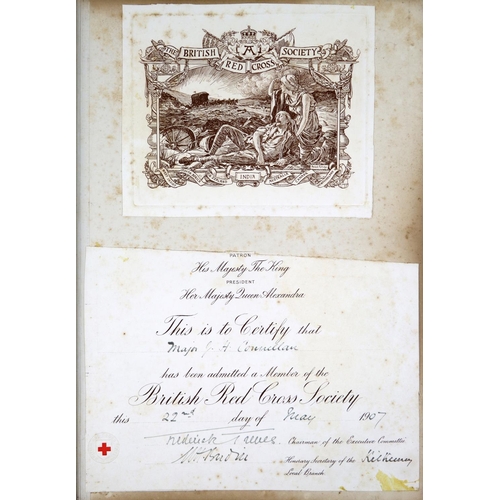 THE BRITISH SOCIETY
RED CROSS
INDIA
PATRON
His Majesty The King
PRESIDENT
Her Majesty Queen Alexandra
This is to Certify that
Major J. H. Connellan
has been admitted a Member of the
British Red Cross Society
this 22nd day of May 1907
Frederick Treves Chairman of the Executive Committee
Honorary Secretary of the Kilkenny
Local Branch